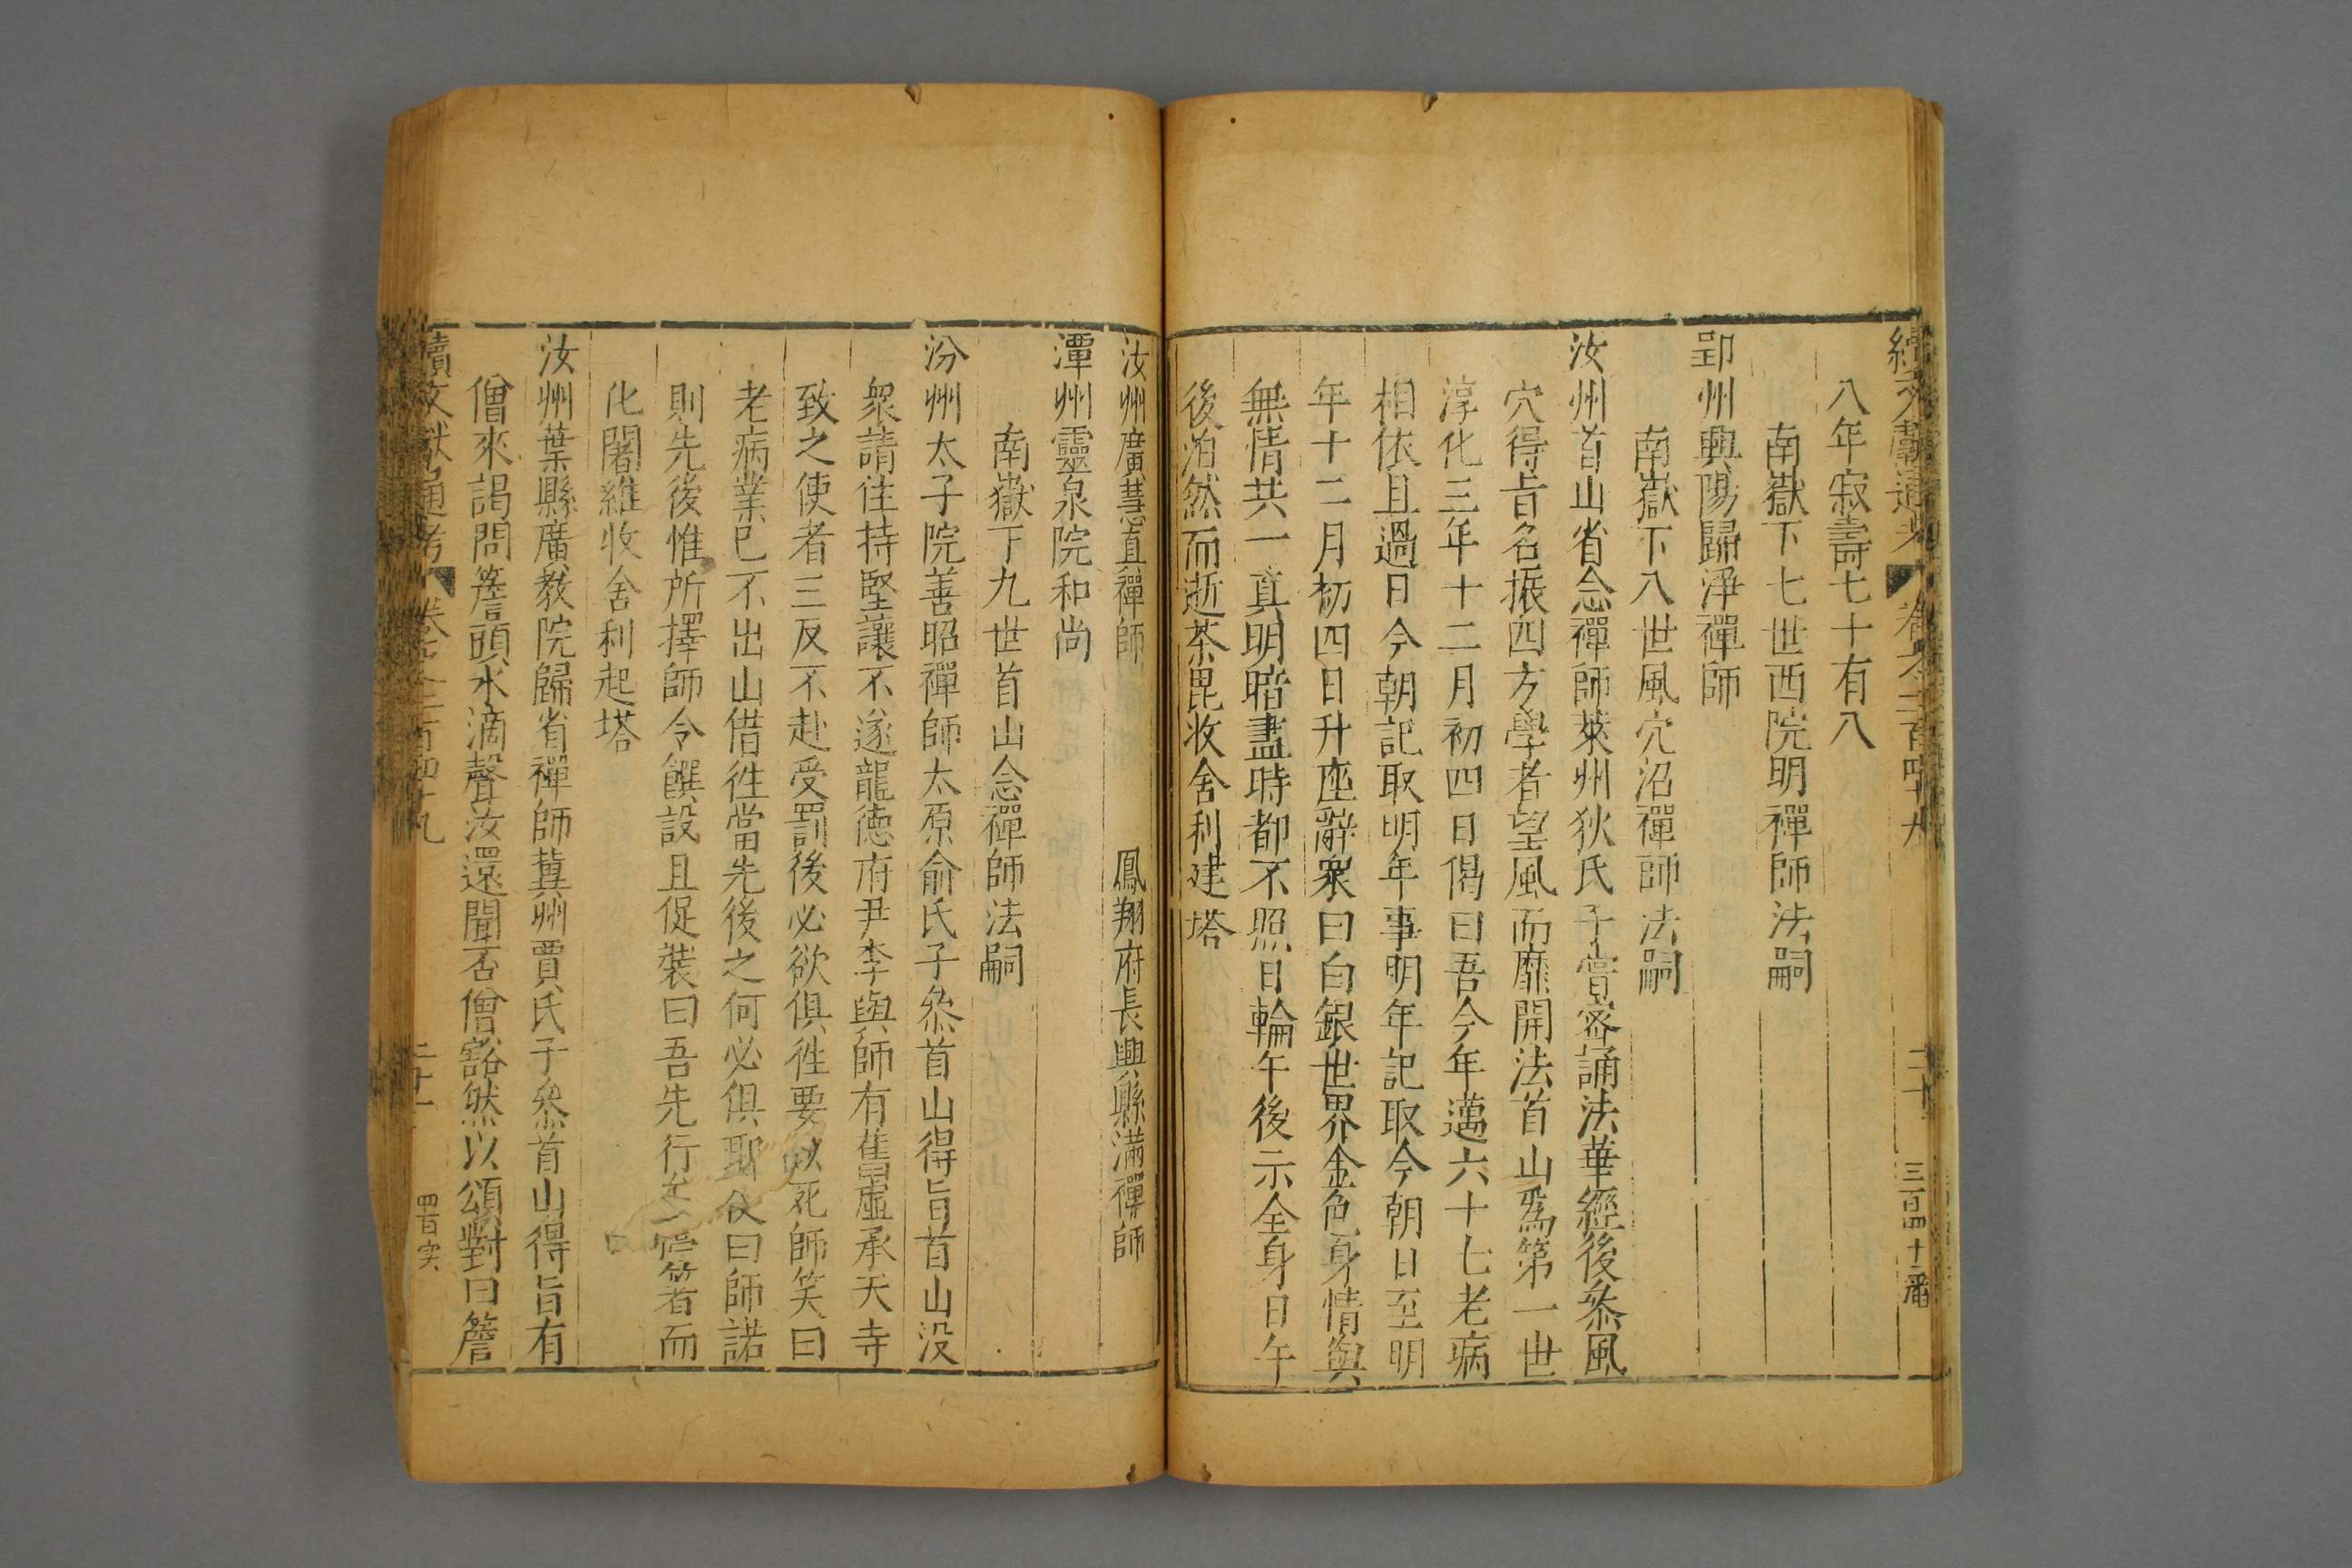 續文獻通考 卷之二百四十九 二十 三百四十二番
八年寂壽七十有八
南嶽下七世西院明禪師法嗣
郢州興陽歸淨禪師
南嶽下八世風穴沼禪師法嗣
汝州首山省念禪師萊州狄氏子嘗密誦法華經後叅風
穴得旨名振四方學者望風而靡開法首山爲第一世
淳化三年十二月初四日偈曰吾今年邁六十七老病
相依且過日今朝記取明年事明年記取今朝日至明
年十二月初四日升座辭衆曰白銀世界金色身情與
無情共一真明暗盡時都不照日輪午後示全身日午
後泊然而逝茶毘收舍利建塔
汝州廣慧真禪師 鳳翔府長興縣滿禪師
潭州靈泉院和尚
南嶽下九世首山念禪師法嗣
汾州太子院善昭禪師太原俞氏子叅首山得旨首山没
衆請住持堅讓不遂龍德府尹李與師有舊虛承天寺
致之使者三反不赴受罰後必欲俱徃要以死師笑曰
老病業已不出山借徃當先後之何必俱耶使曰師諾
則先後惟所擇師令饌設且促裝曰吾先行矣停箸而
化闍維收舍利起塔
汝州葉縣廣教院歸省禪師冀州賈氏子叅首山得旨有
僧來謁問簷頭水滴聲汝還聞否僧豁然以頌對曰簷
續文獻通考 卷之二百四十九 二十一 四百六